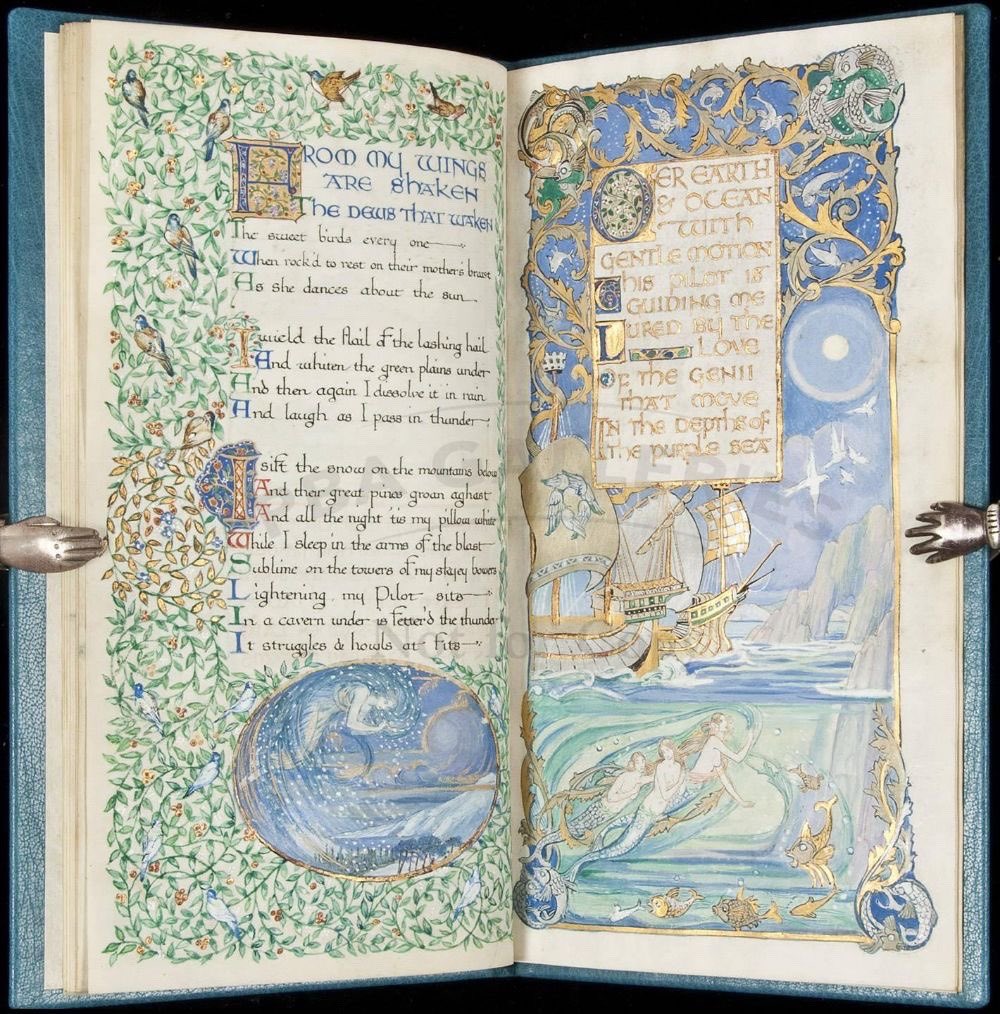 FROM MY WINGS
ARE SHAKEN
THE DEWS THAT WAKEN
The sweet birds every one
When rock'd to rest on their mother's breast
As she dances about the sun
I wield the flail of the lashing hail
And whiten the green plains under
And then again I dissolve it in rain
And laugh as I pass in thunder
I sift the snow on the mountains below
And their great pines groan aghast
And all the night 'tis my pillow white
While I sleep in the arms of the blast
Sublime on the towers of my skyey bowers
Lightening my Pilot sits
In a cavern under is fetter'd the thunder
It struggles & howls at fits
OER EARTH
& OCEAN
WITH
GENTLE MOTION
THIS PILOT IS
GUIDING ME
LURED BY THE
LOVE
OF THE GENII
THAT MOVE
IN THE DEPTHS OF
THE PURPLE SEA
GALLERIES